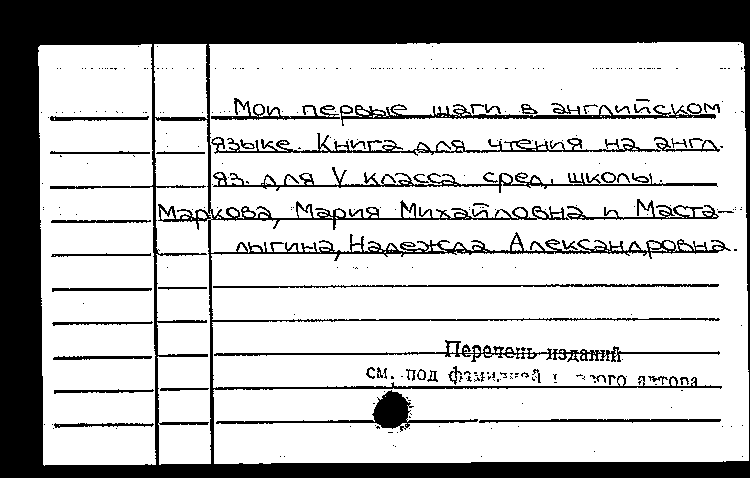 Мои первые шаги в английском
языке. Книга для чтения на англ.
яз. для V класса сред. школы.
Маркова, Мария Михайловна и Маста-
лыгина, Надежда Александровна.
Перечень изданий
см. под фамилией автора